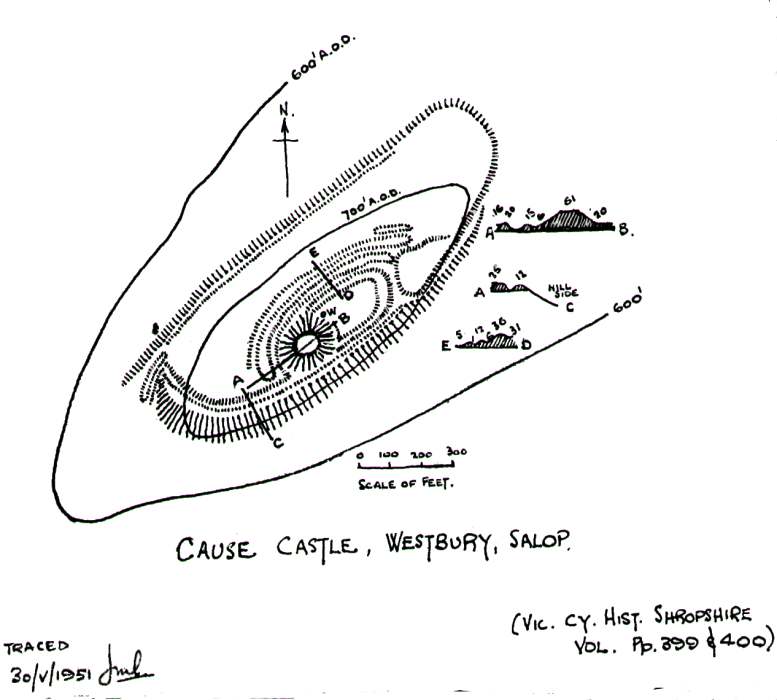 600' A.O.D.
N.
700' A.O.D.
E
D
W
B
A
C
16 20 15 6 61 20
A B.
25 12
A HILL SIDE
C
600'
5 12 6 36 31
E D
0 100 200 300
SCALE OF FEET.
CAUSE CASTLE, WESTBURY, SALOP.
(VIC. CY. HIST. SHROPSHIRE
VOL. Pp. 399 & 400)
TRACED
30/V/1951